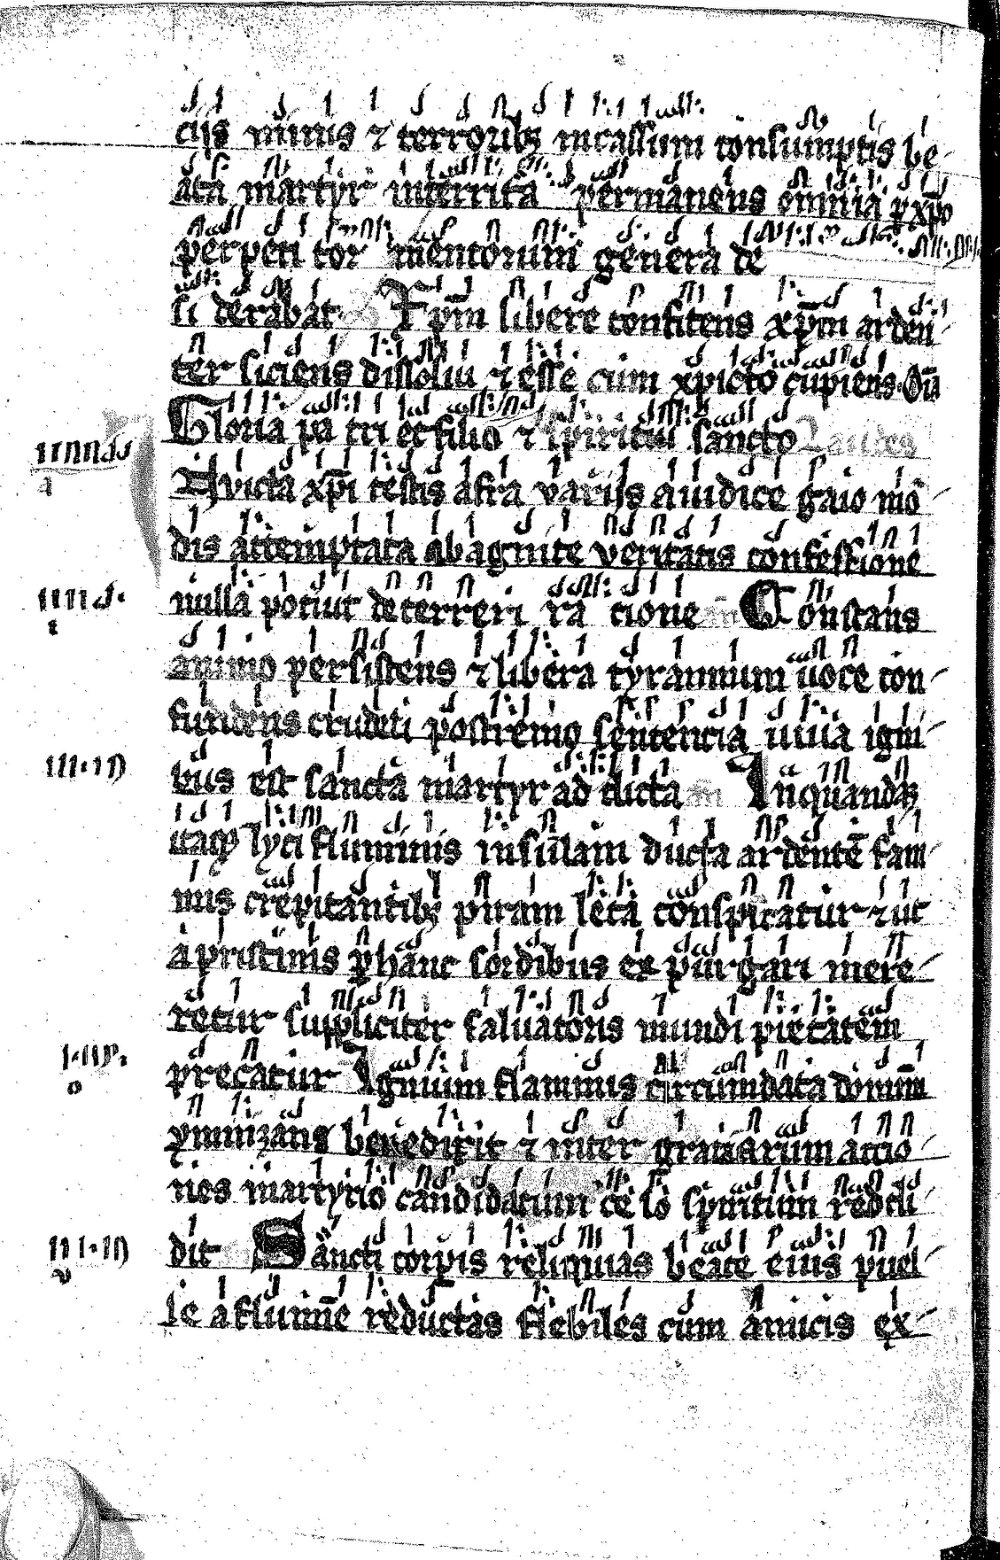 cijs minis ⁊ terroribꝫ incassum consumptis be-
ata martyr interrita permanens omnia ꝓ xp̄o
perpeti tor mentorum genera de
si derabat Xp̄m libere confitens xp̄m arden-
ter siciens dissolui ⁊ esse cum xpicto cupiens. Oīa
Gloria pa tri et filio ⁊ spiritui sancto Laudes
A victa xp̄i testis afra varijs a iudice gaio mo-
dis attemptata ab agnite veritatis confessione
nulla potiut deterreri ra tione an̄ Constans
animo persistens ⁊ libera tyrannum uoce con-
fundens crudeli postremo sentencia uiua igni-
bus est sancta martyr ad dicta an̄ In quandā
itaqꝫ lyci fluminis insulam ducta ardentē flam-
mis crepitantibꝫ piram leta conspicatur ⁊ ut
a pristinis ꝑ hanc sordibus ex purgari mere-
retur suppliciter saluatoris mundi pietatem
precatur Ignium flammis circumdata dominum
ymnizans benedixit ⁊ inter gratiarum actio-
nes martyrio candidatum ce lo spiritum reddi-
dit Sancti corꝑis reliquias beate eius puel-
le a flumine reductas flebiles cum amicis ex-